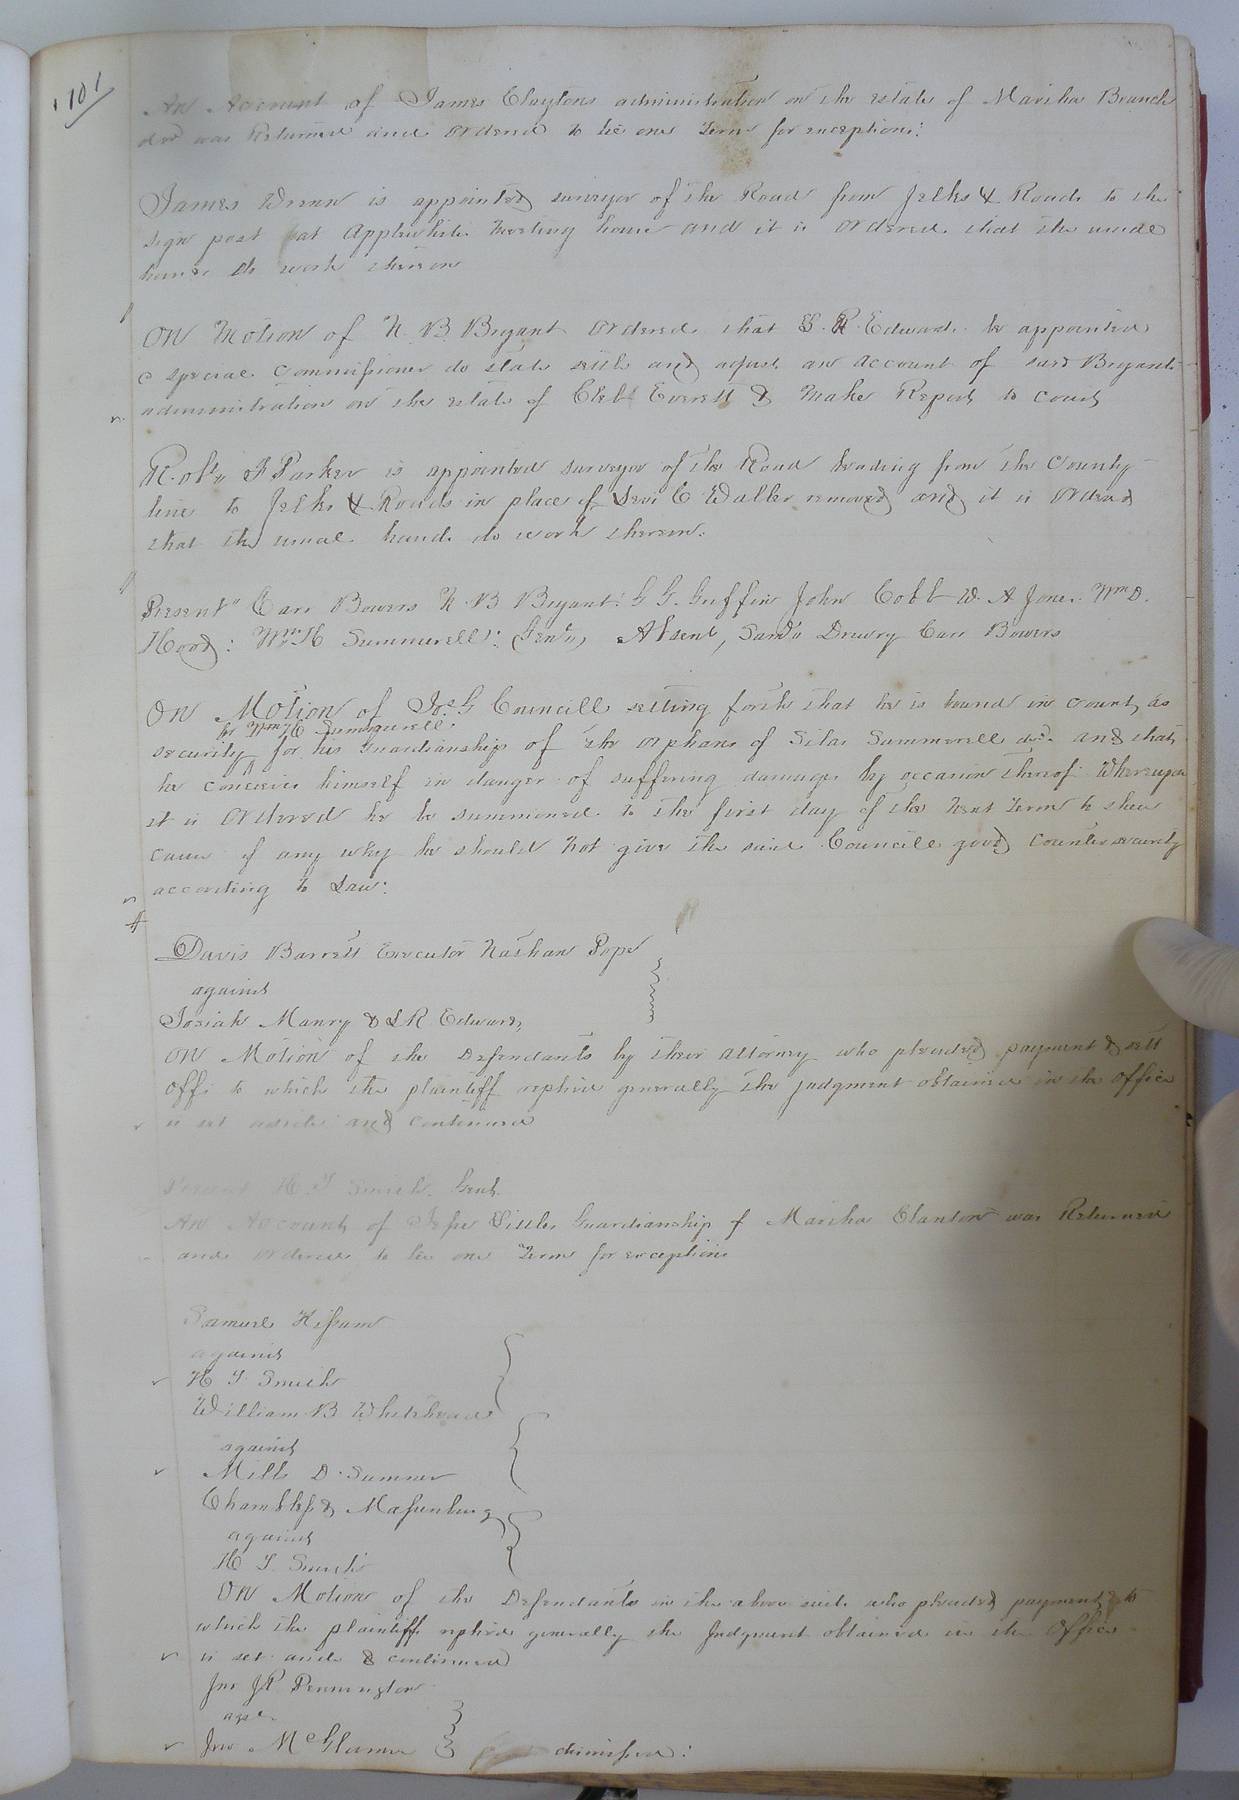 101
An Account of James Claytons administration on the estate of Martha Branch
decd was Returned and ordered to lie one Term for exceptions:
James Wrenn is appointed surveyor of the Road from Jelks X Roads to the
sign post at Applewhite Meeting house and it is ordered that the usual
hands do work thereon
On Motion of N. B. Bryant ordered that S. R. Edwards be appointed
a special commissioner do state settle and adjust an account of said Bryants
administration on the estate of Cleb Everett & Make Report to court
Robt. F Parker is appointed surveyor of the Road heading from the County
line to Jelks X Roads in place of Levi C Waller removed and it is ordered
that the usual hands do work thereon.
Present" Carr Bowers N. B Bryant: G G. Griffin John Cobb W. A Jones Wm D.
Hood: Wm H Summerell: Gent, Absent, Saml Drewry Carr Bowers
On Motion of Jos. G Councill setting forth that he is bound in court as
by Wm H Summerell
security for his Guardianship of the orphans of Silas Summerell decd. and that
he concieves himself in danger of suffering damages by occasion thereof Whereupon
it is Ordered he be summoned to the first day of the Next Term to shew
cause if any why he should Not give the said Councill good counter security
according to Law:
Davis Barrett Executor Nathan Pope
against
Josiah Manry & S R Edwards
On Motion of the Defendants by their attorney who pleaded payment & sett
offs to which the plaintiff replied generally the judgment obtained in the office
is set aside and continued
Present H. T Smith. Gent.
An Account of Jesse Littles Guardianship of Martha Clanton was Returned
and ordered to lie one Term for exceptions
Samuel Kissam
against
H T Smith
William B Whitehead
against
Mills D. Sumner
Chambliss & Massenburg
against
H T Smith
On Motion of the Defendants in the above suits who pleaded payment to
which the plaintiff replied generally the Judgment obtained in the Office
is set aside & continued
Jno J R Pennington
agst.
Jno McGlamre dismissed: